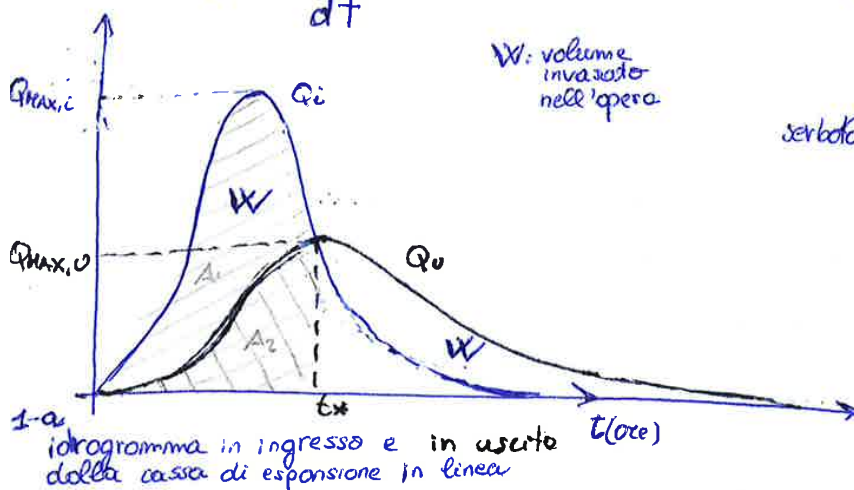 dt
W: volume
invasato
nell'opera
Q MAX,i
Qi
W
Q MAX,U
A1
Qu
A2
W
t*
t(ore)
idrogramma in ingresso e in uscita
dalla cassa di espansione in linea